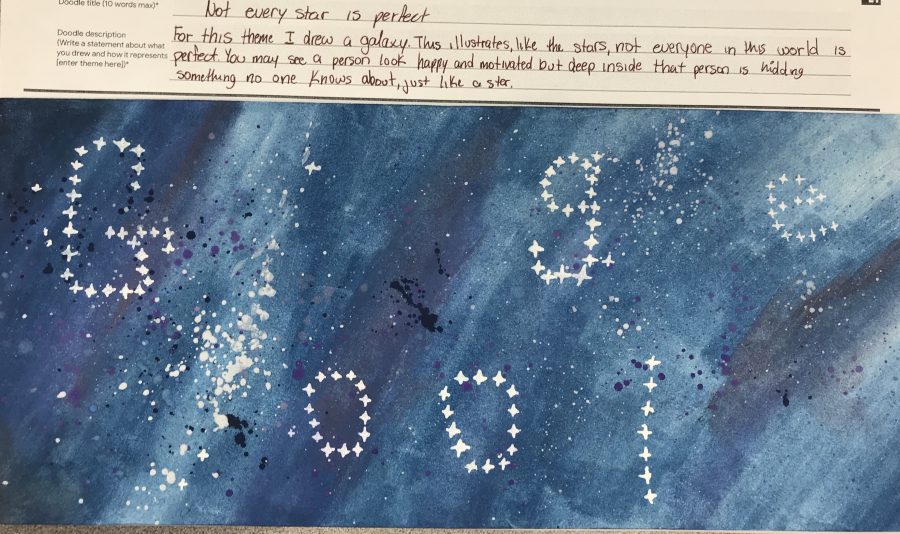 Doodle title (10 words max)*
Not every star is perfect
Doodle description
(Write a statement about what
you drew and how it represents
[enter theme here])*
For this theme I drew a galaxy. This illustrates, like the stars, not everyone in this world is
perfect. You may see a person look happy and motivated but deep inside that person is hiding
something no one knows about, just like a star.
G g e
o o l